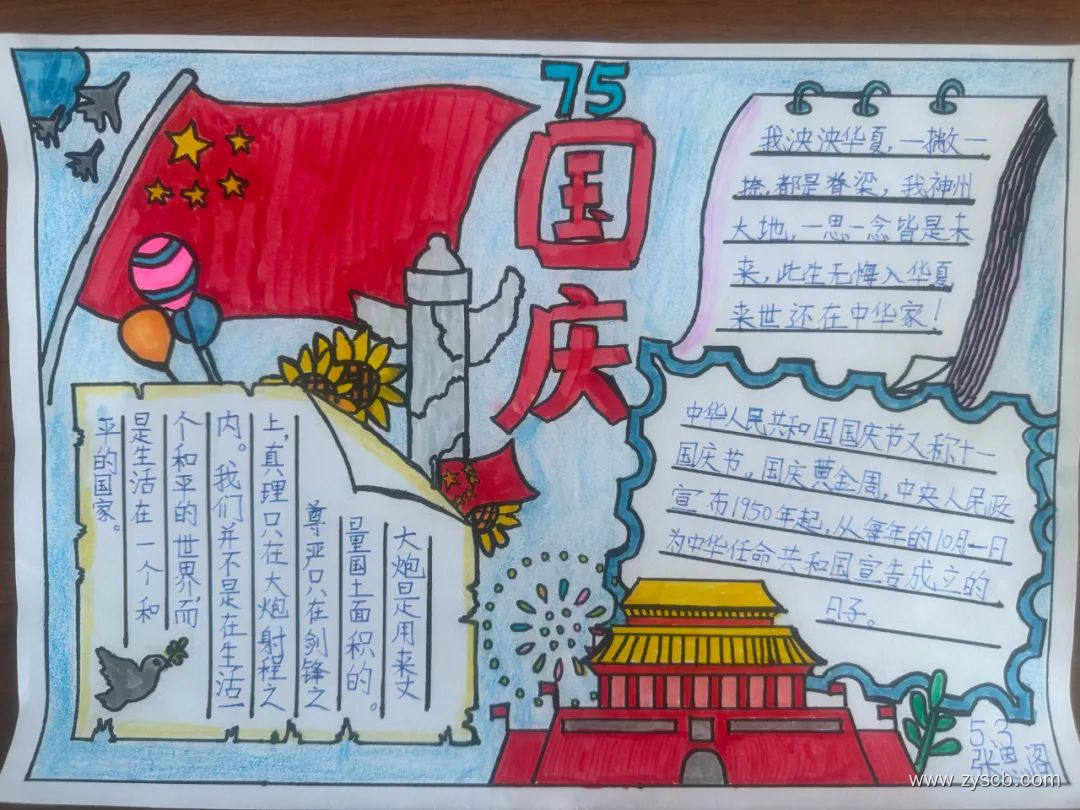 75
国庆
我泱泱华夏，一撇一
捺，都是脊梁，我神州
大地，一思一念皆是未
来，此生无悔入华夏
来世还在中华家！
中华人民共和国国庆节又称十一
国庆节，国庆黄金周，中央人民政
宣布1950年起，从每年的10月一日
为中华任命共和国宣告成立的
日子。
大炮是用来丈
量国土面积的。
尊严只在剑锋之
上，真理只在大炮射程之
内。我们并不是在生活一
个和平的世界，而
是生活在一个和
平的国家。
5.3
张思
www.zyscb.com